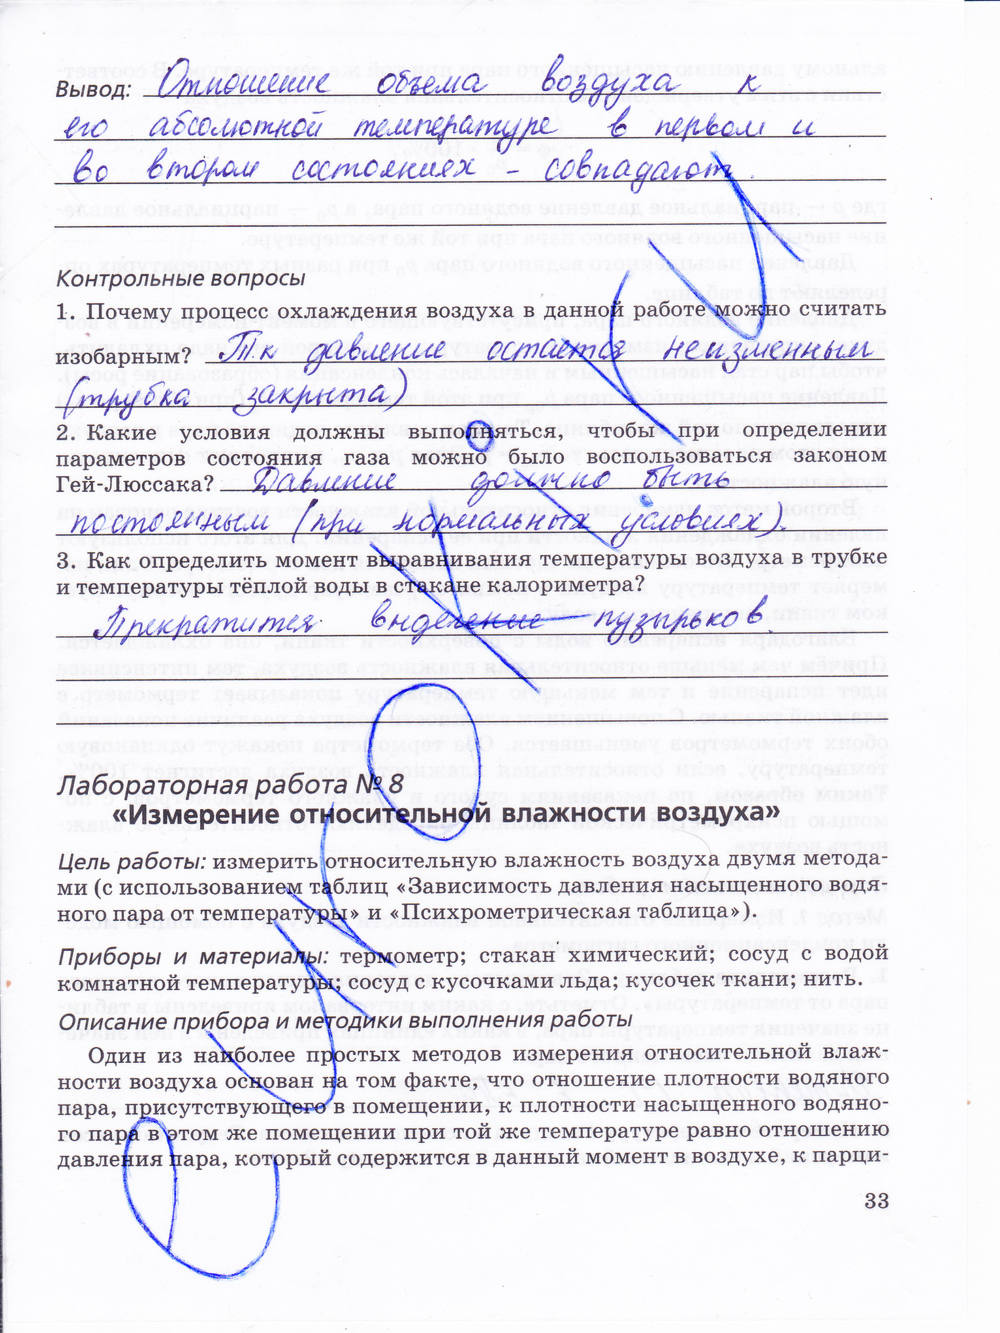 Вывод: Отношение объема воздуха к
его абсолютной температуре в первом и
во втором состояниях - совпадают.
Контрольные вопросы
1. Почему процесс охлаждения воздуха в данной работе можно считать
изобарным? Т.к давление остается неизменным
(трубка закрыта)
2. Какие условия должны выполняться, чтобы при определении
параметров состояния газа можно было воспользоваться законом
Гей-Люссака? Давление должно быть
постоянным (при нормальных условиях).
3. Как определить момент выравнивания температуры воздуха в трубке
и температуры тёплой воды в стакане калориметра?
Прекратится выделение пузырьков
Лабораторная работа № 8
«Измерение относительной влажности воздуха»
Цель работы: измерить относительную влажность воздуха двумя метода-
ми (с использованием таблиц «Зависимость давления насыщенного водя-
ного пара от температуры» и «Психрометрическая таблица»).
Приборы и материалы: термометр; стакан химический; сосуд с водой
комнатной температуры; сосуд с кусочками льда; кусочек ткани; нить.
Описание прибора и методика выполнения работы
Один из наиболее простых методов измерения относительной влаж-
ности воздуха основан на том факте, что отношение плотности водяного
пара, присутствующего в помещении, к плотности насыщенного водяно-
го пара в этом же помещении при той же температуре равно отношению
давления пара, который содержится в данный момент в воздухе, к парци-
33